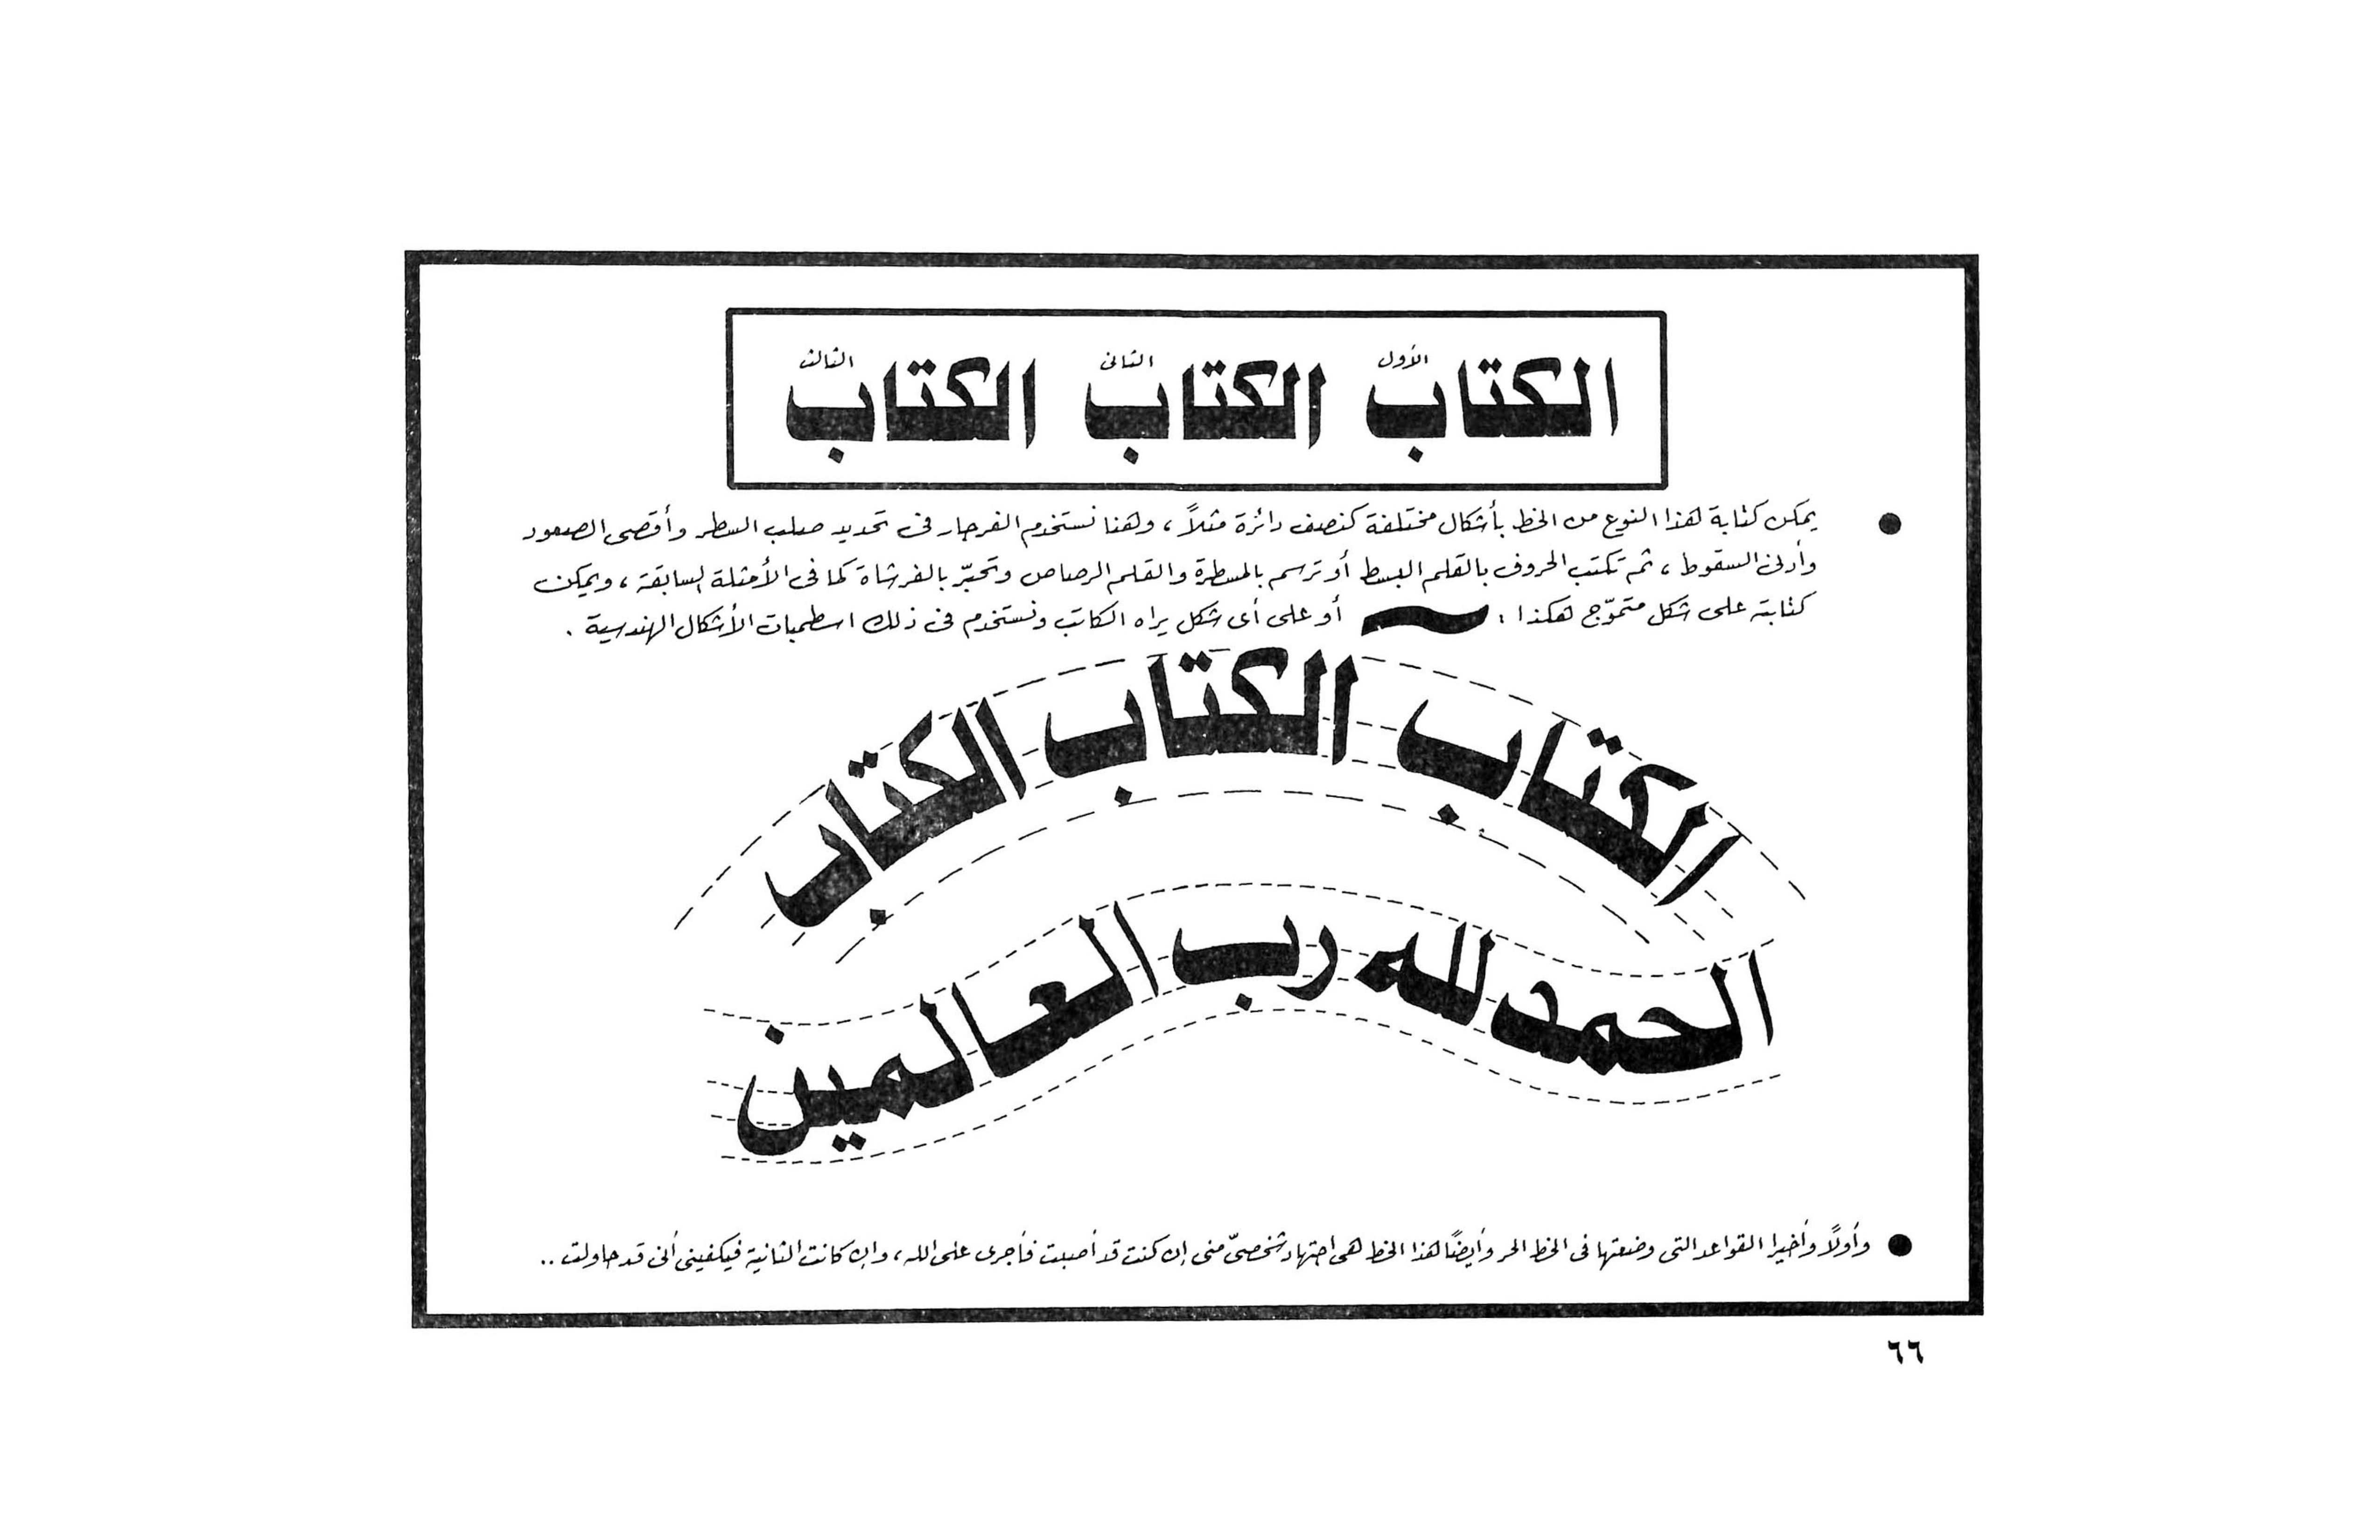 الكتاب الأول الكتاب الثانى الكتاب الثالث
يمكن كتابة هذا النوع من الخط بأشكال مختلفة كنصف دائرة مثلاً ، وهنا نستخدم الفرجار فى تحديد صلب السطر وأقصى الصعود
وأدنى السقوط ، ثم تكتب الحروف بالقلم البسط أو ترسم بالمسطرة والقلم الرصاص وتحبّر بالفرشاة كما فى الأمثلة السابقة ، ويمكن
كتابته على شكل متموّج هكذا : أو على أى شكل يراه الكاتب ونستخدم فى ذلك اسطمبات الأشكال الهندسية .
الكتاب الكتاب الكتاب
الحمد لله رب العالمين
وأولًا وأخيرا القواعد التى وضعتها فى الخط الحر وأيضًا هذا الخط هى اجتهاد شخصىّ منى إن كنت قد أصبت فأجرى على الله ، وإن كانت الثانية فيكفينى أنى قد حاولت ..
٦٦